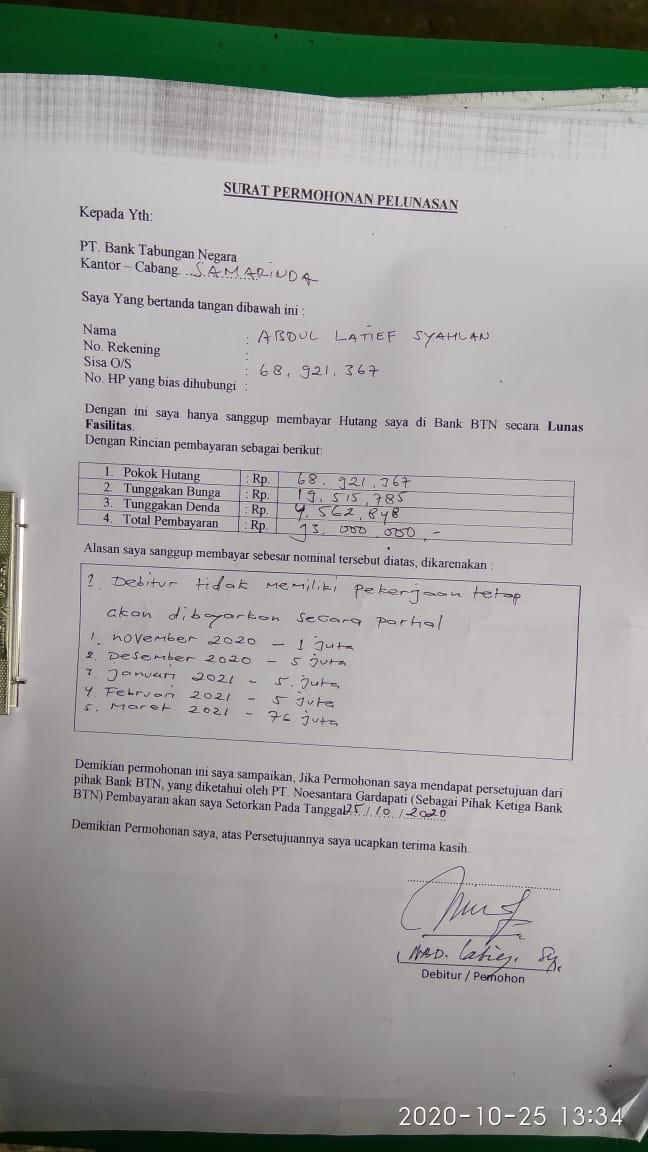 SURAT PERMOHONAN PELUNASAN
Kepada Yth:
PT. Bank Tabungan Negara
Kantor – Cabang. SAMARINDA
Saya Yang bertanda tangan dibawah ini :
Nama : ABDUL LATIEF SYAHLAN
No. Rekening :
Sisa O/S : 68,921.367
No. HP yang bias dihubungi :
Dengan ini saya hanya sanggup membayar Hutang saya di Bank BTN secara Lunas
Fasilitas.
Dengan Rincian pembayaran sebagai berikut:
1. Pokok Hutang : Rp. 68.921.367
2. Tunggakan Bunga : Rp. 19,515,785
3. Tunggakan Denda : Rp. 4,562,848
4. Total Pembayaran : Rp. 93.000.000,-
Alasan saya sanggup membayar sebesar nominal tersebut diatas, dikarenakan :
1. Debitur tidak memiliki pekerjaan tetap
akan dibayarkan secara partial
1. november 2020 - 1 juta
2. Desember 2020 - 5 juta
3. Januari 2021 - 5. juta
4. Februari 2021 - 5 juta
5. Maret 2021 - 76 juta
Demikian permohonan ini saya sampaikan, Jika Permohonan saya mendapat persetujuan dari
pihak Bank BTN, yang diketahui oleh PT. Noesantara Gardapati (Sebagai Pihak Ketiga Bank
BTN) Pembayaran akan saya Setorkan Pada Tanggal 25/10/2020
Demikian Permohonan saya, atas Persetujuannya saya ucapkan terima kasih.
Debitur / Pemohon
2020-10-25 13:34